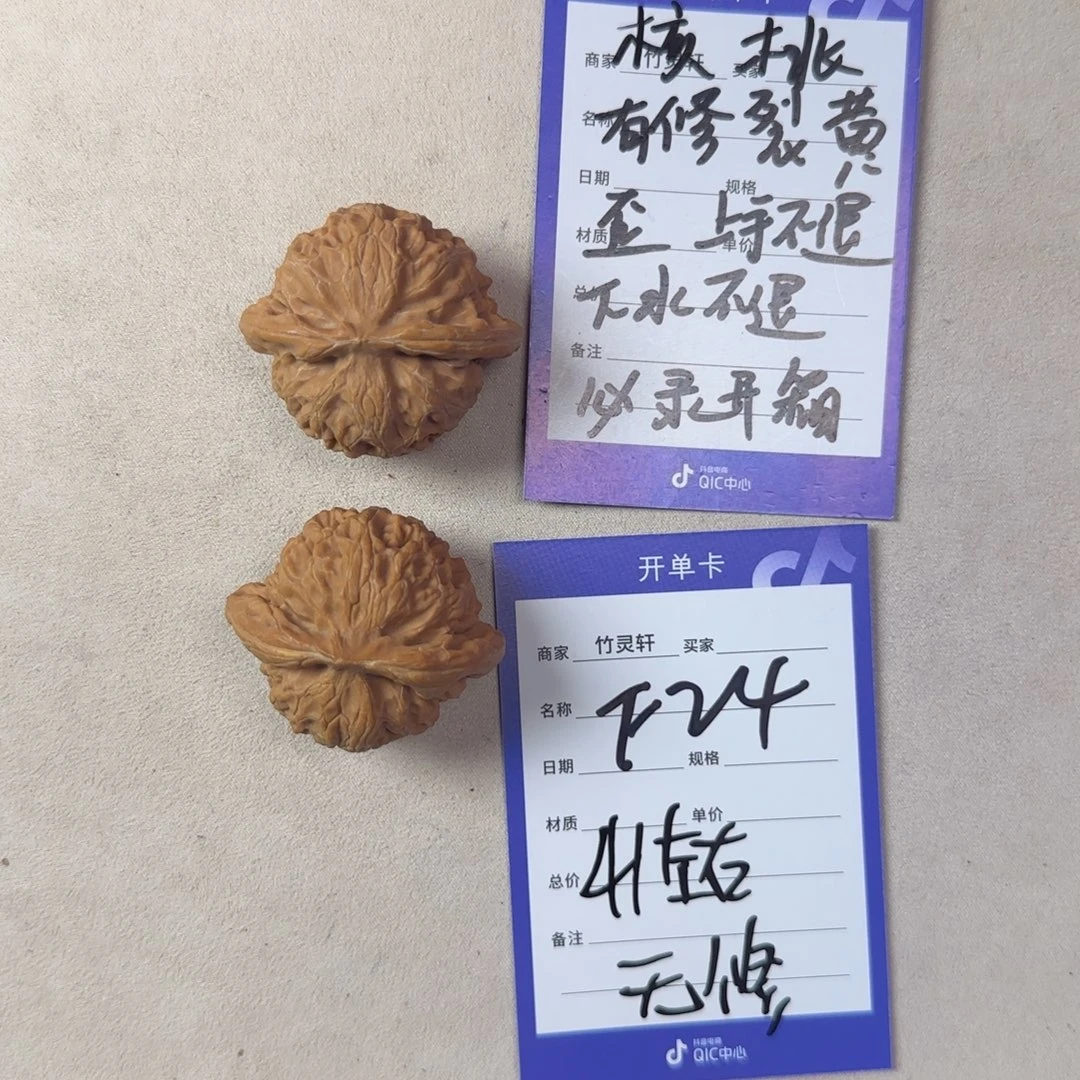 核桃
商家 竹灵轩 买家
名称
有修裂黄
日期 规格
材质 单价
歪 上手不退
下水不退
备注
必录开箱
抖音电商
QIC中心
开单卡
商家 竹灵轩 买家
名称
F24
日期 规格
材质 单价
总价 41左右
备注
无修
抖音电商
QIC中心